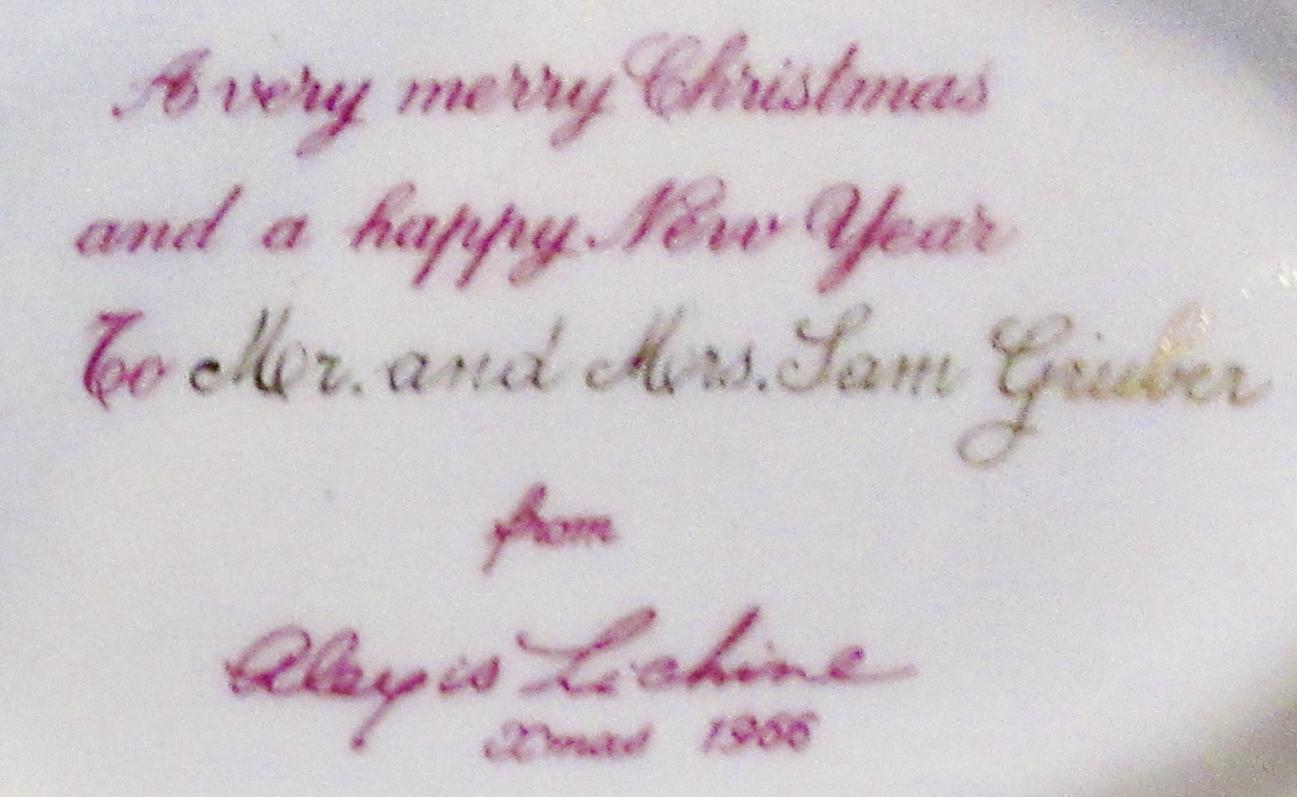 A very merry Christmas
and a happy New Year
To Mr. and Mrs. Sam Gruber
from
Alexis Lichine
Xmas 1966